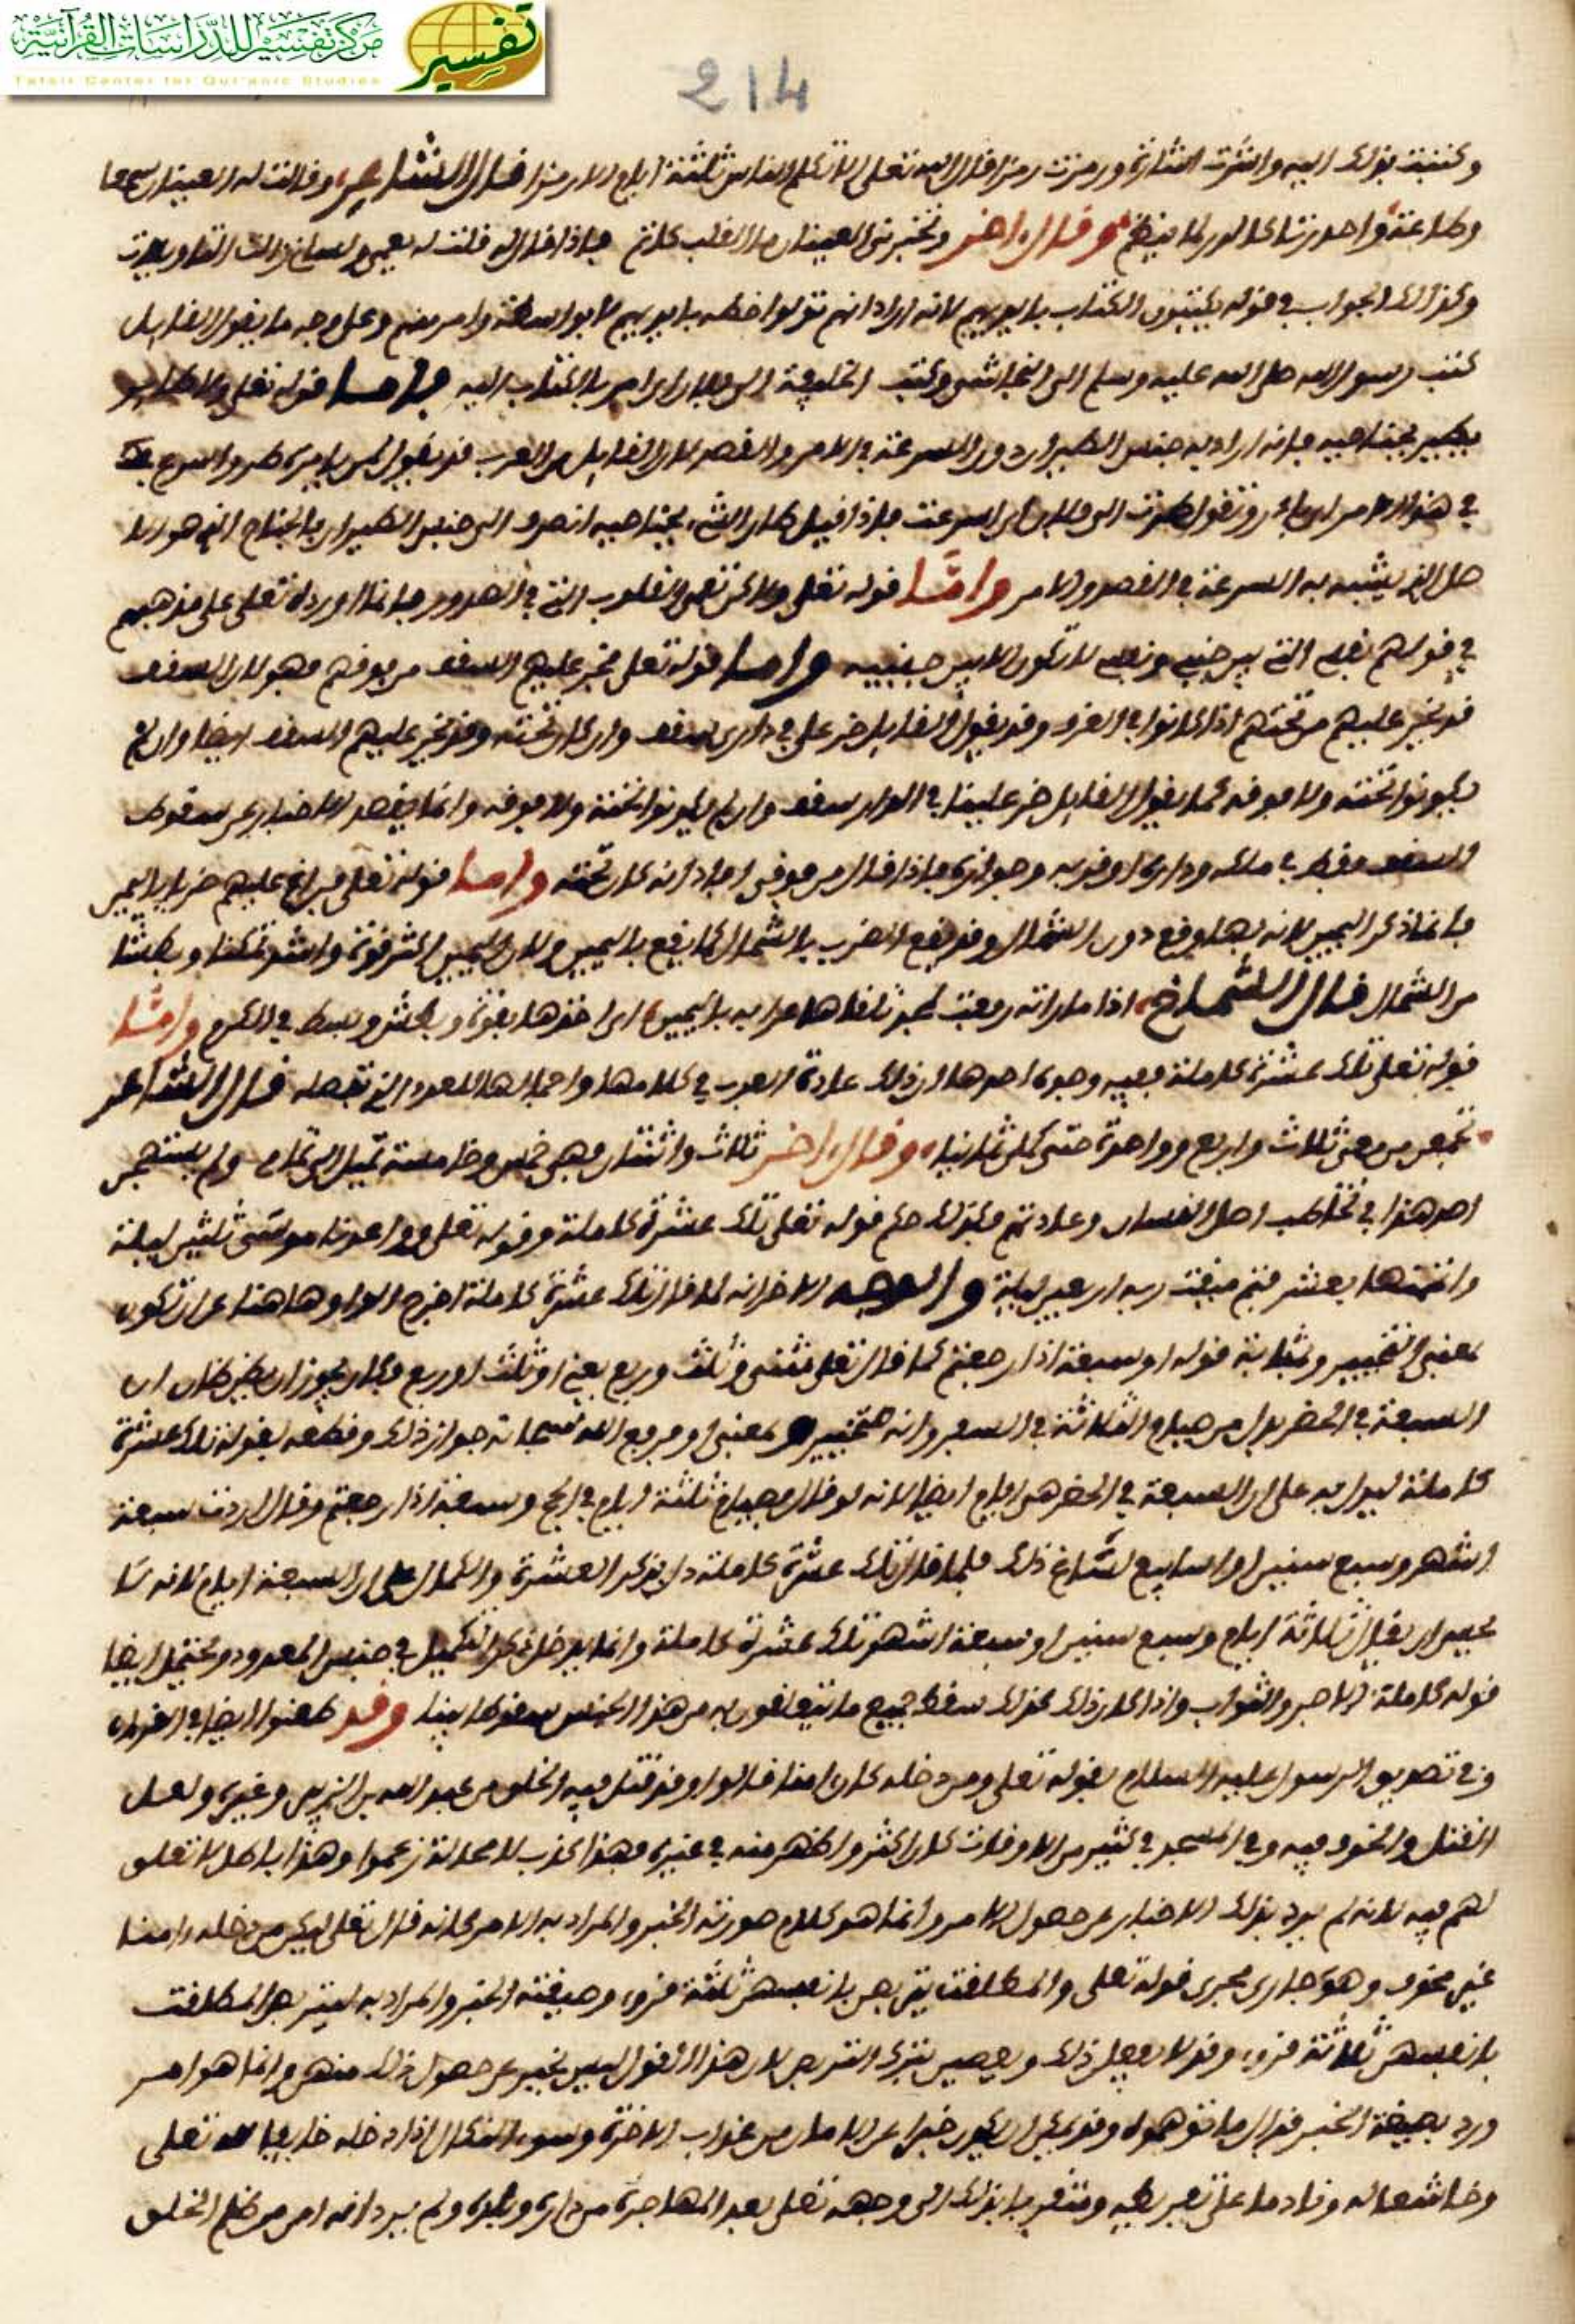 مركز تفسير للدراسات القرآنية
تفسير
Tafsir Center for Qur'anic Studies
214
وكتبت بذلك اليه واشرت اشارة ورمزت رمزا قال الله تعلى الا تكلم الناس ثلثة ايام الا رمزا قال الشاعر وقالت له العينان سمعا
وطاعة واحدرتا كالدر لما ينظم وقال اخر وتخبرني العينان ما القلب كاتم فاذا قال قلت له
وكذلك الجواب في قوله يكتبون الكتاب بايديهم لانه اراد انهم تولوا خطه بايديهم لا بواسطة وامر منهم وعلى وجه ما يقول القايل
كتب رسول الله صلى الله عليه وسلم الى النجاشي وكتب الخليفة الى فلان اي امر بالكتاب اليه فاما قوله تعلى ولا طاير
يطير بجناحيه فانه اراد به جنس الطيران دون السرعة في الامر والقصد لان القايل من العرب قد يقول لمن يامره طر واسرع
في هذا الامر اي بادر وتقول طرت الى فلان اي اسرعت فاذا قيل طار الشيء بجناحيه انصرف الى جنس الطيران بالجناح الذي هو الا
صل الذي يشبه به السرعة في القصد والامر واما قوله تعلى ولاكن تعمى القلوب التي في الصدور فانما اورده تعلى على مذهبهم
في قولهم نفسي التي بين جنبي ونفسه لا تكون الا بين جنبيه واما قوله تعلى فخر عليهم السقف من فوقهم فهو لان السقف
قد يخر عليهم من تحتهم اذا كانوا في الغرف وقد يقول القايل خر علي في داري سقف وان كان تحته وقد يخر عليهم السقف ايضا وان لم
يكونوا تحته ولا فوقه كما يقول القايل خر علينا في الدار سقف وان لم يكونوا تحته ولا فوقه وانما يقصد الاخبار عن سقوط
السقف فقط في ملكه وداره او قربه وجواره فاذا قال من فوقي افاد انه كان تحته واما قوله تعلى فراغ عليهم ضربا باليمين
فانما ذكر اليمين لانه بها وقع دون الشمال وقد يقع الضرب بالشمال كما يقع باليمين ولان اليمين اكثر قوة واشد تمكنا وبطشا
من الشمال قال الشماخ اذا ما راية رفعت لمجد تلقاها عرابة باليمين اي اخذها بقوة وبطش وبسط في الكرم واما
قوله تعلى تلك عشرة كاملة ففيه وجوه احدها ان ذلك عادة العرب في كلامها واجمالها للعدد الذي تفصله قال الشاعر
تجمعن من معي ثلاث واربع وواحدة حتى كملن ثمانيا وقال اخر ثلاث واثنتان فهي خمس وخامسة تميل الى تمام ولم يستهجن
احد هذا في تخاطب اهل اللسان وعادتهم فكذلك حكم قوله تعلى تلك عشرة كاملة وقوله تعلى وواعدنا موسى ثلثين ليلة
واتممنها بعشر فتم ميقت ربه اربعين ليلة والوجه الاخر انه لما قال تلك عشرة كاملة اخرج الواو هاهنا عن ان تكون
بمعنى التخيير وبمثابة قوله او سبعة اذا رجعتم كما قال تعلى مثنى وثلث وربع يعني او ثلث او ربع فكان يجوز ان يظن ظان ان
السبعة في الحضر بدل من صيام الثلاثة في السفر وانه تخيير بمعنى او فرفع الله سبحانه جواز ذلك وقطعه بقوله تلك عشرة
كاملة ليدل به على ان السبعة في الحضر هي ايام ايضا لانه لو قال فصيام ثلثة ايام في الحج وسبعة اذا رجعتم وقال اردت سبعة
اشهر وسبع سنين او اسابيع لساغ ذلك فلما قال تلك عشرة كاملة دل بذكر العشرة والكمال على ان السبعة ايام لانه لا
يحسن ان يقال ثلاثة ايام وسبع سنين او سبعة اشهر تلك عشرة كاملة وانما يدخل ذكر التكميل في جنس المعدود ويحتمل ايضا
قوله كاملة الاجر والثواب واذا كان ذلك كذلك سقط جميع ما يتعلقون به من هذا الجنس سقوطا بينا وقد طعنوا ايضا في القران
وفي تصديق الرسول عليه السلام بقوله تعلى ومن دخله كان امنا قالوا وقد قتل فيه الخلق من عبد الله بن الزبير وغيره ولعل
القتل والخوف فيه وفي المسجد في كثير من الاوقات كان اكثر واظهر منه في غيره فهذا كذب لا محالة زعموا وهذا باطل لا تعلق
لهم فيه لانه لم يرد بذلك الاخبار عن حصول الامر وانما هو كلام صورته الخبر والمراد به الامر كانه قال تعلى ليكن من دخله امنا
غير مخوف وهو جاري مجرى قوله تعلى والمطلقت يتربصن بانفسهن ثلثة قروء وصيغته الخبر والمراد به ليتربصن المطلقت
بانفسهن ثلاثة قروء وقد لا يفعلن ذلك ويعصين بترك التربص لان هذا القول ليس بخبر عن حصول ذلك منهن وانما هو امر
ورد بصيغة الخبر فزال ما توهموه وقد يمكن ان يكون خبرا عن الامان من عذاب الاخرة وسوء النكال اذا دخله خايفا لله تعلى
وخاشعا له ونادما على تفريطه ومتقربا بذلك الى وجهه تعلى بعد المهاجرة من داره وبلده ولم يرد انه امن من ظلم الخلق